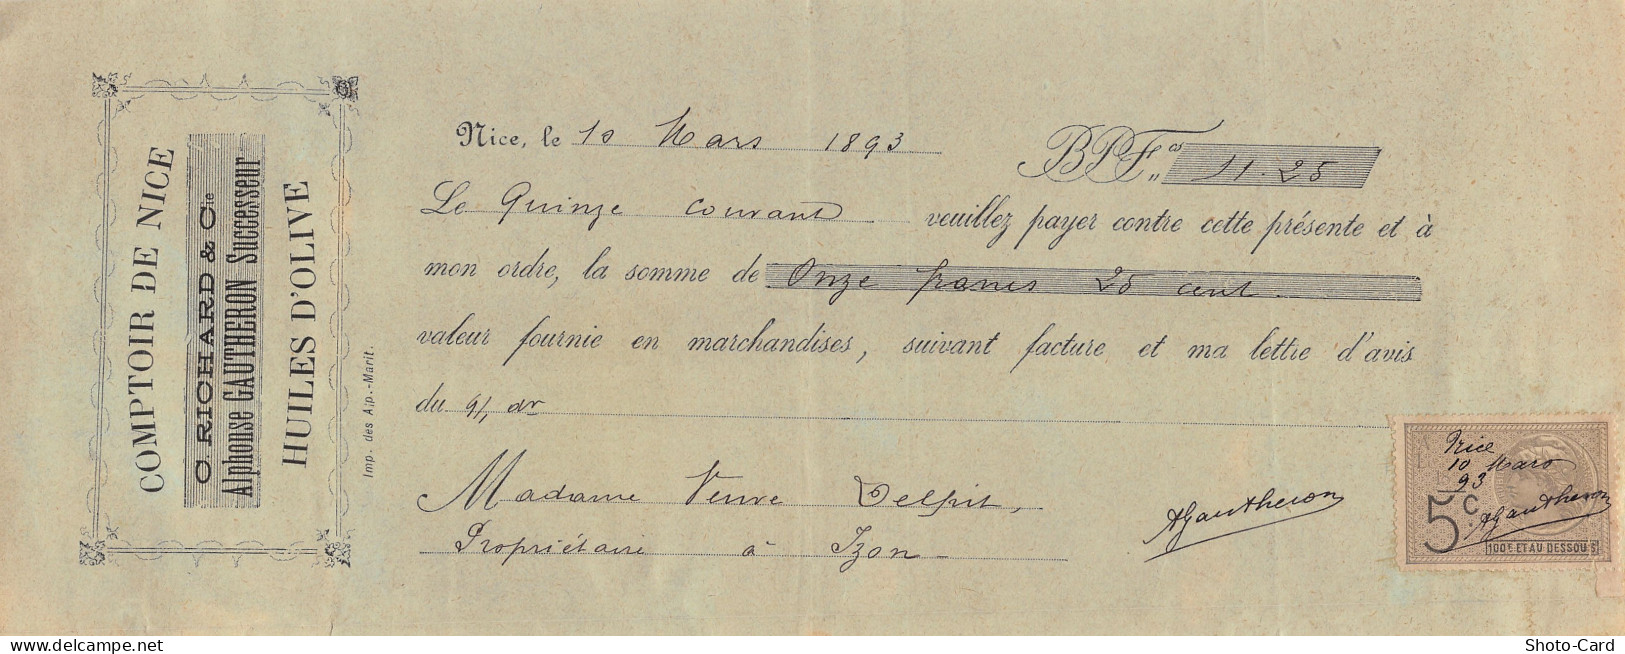 COMPTOIR DE NICE
C. RICHARD & Cie
Alphonse GAUTHERON Successeur
HUILES D'OLIVE
Imp. des Alp.-Marit.
Nice, le 10 Mars 1893
BPFcs „ 11.25
Le Quinze courant veuillez payer contre cette présente et à
mon ordre, la somme de Onze francs 25 cent
valeur fournie en marchandises, suivant facture et ma lettre d'avis
du
Madame Veuve Delpit,
Propriétaire à Izon
AGautheron
Nice
10 Mars
93
AGautheron
5 c.
100F ET AU DESSOUS
Shoto-Card